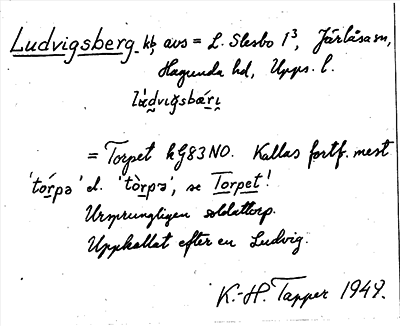 Ludvigsberg kb avs = L. Slesbo 1³, Järlåsa sn,
Hagunda hd, Upps. l.
lùdvigsbárị
= Torpet kG83NO. Kallas fortf. mest
'tórpə' el. 'tòrpə', se Torpet!
Ursprungligen soldattorp.
Uppkallat efter en Ludvig.
K.-H. Tapper 1949.